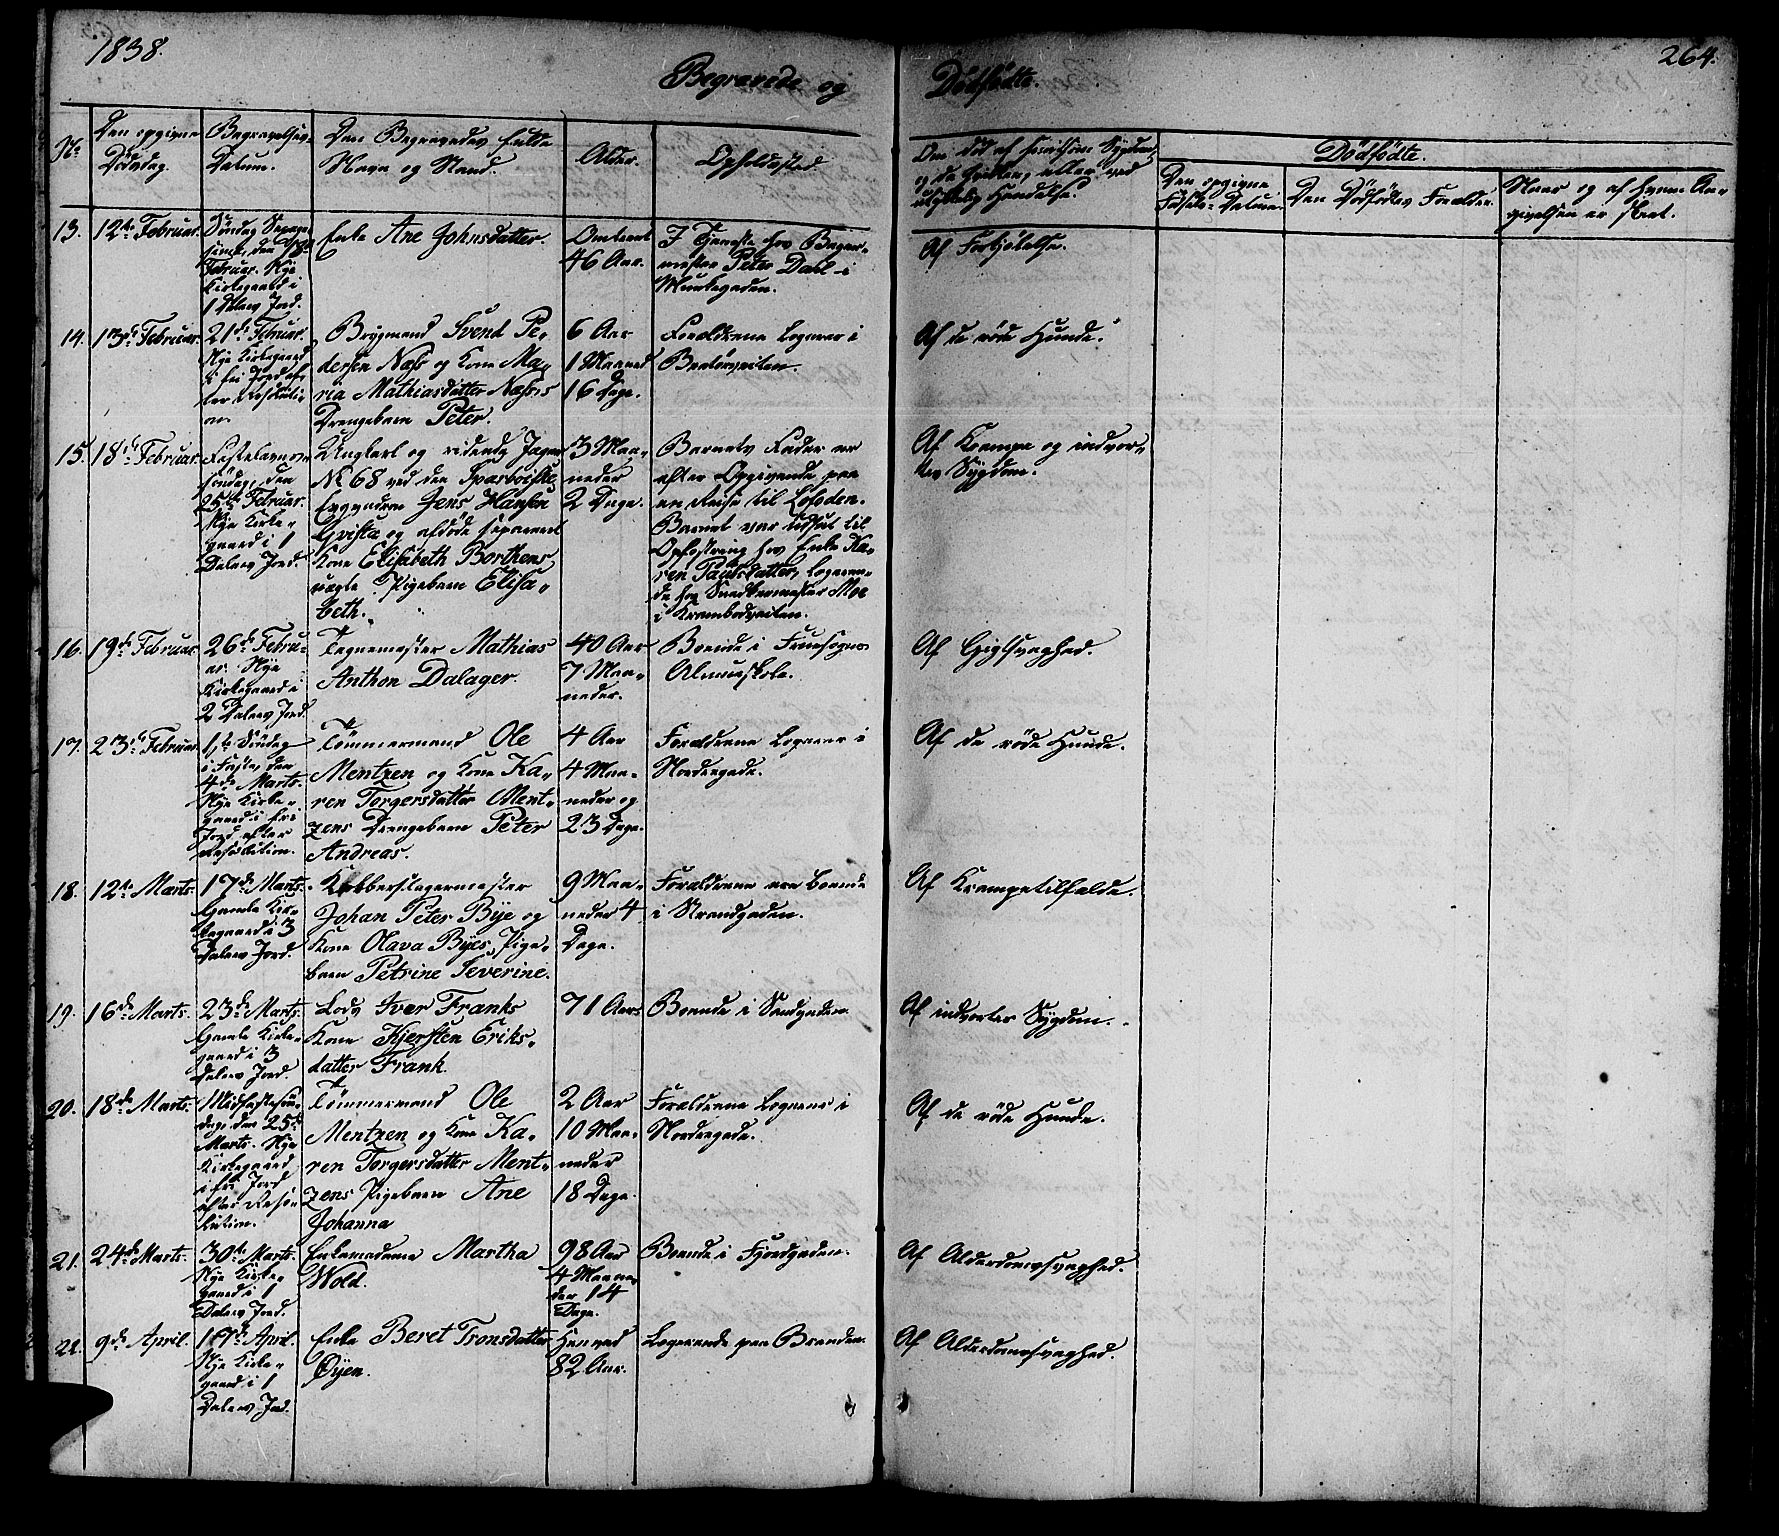 1838.
264.
Begravede og Dødfødte.
No
Den opgivne
Dödsdag.
Begravelses-
Datum.
Den Begravedes fulde
Navn og Stand.
Alder.
Opholdssted.
Om död af
og da hvilken, eller ved
ulykkelig Hændelse.
Dödfödte.
Den opgivne
Födsels-Datum.
Den Dödfödtes Forældre.
Naar og af hvem An-
givelsen er skeet.
13.
12te Februar.
Söndag
den
Februar. Nye
Kirkegaard i
1 Dalers Jord.
Enke Ane Johnsdatter.
Omtrent
46 Aar.
I Tjeneste hos Bager-
mester Peter Dahl i
Munkegaden.
Af Forkjölelse.
14.
13de Februar.
21de Februar.
Nye Kirkegaard
i fri Jord ef-
ter Resoluti-
on.
Brygmand Svend Pe-
dersen Næss og Kone Ma-
ria Mathiasdatter Næss's
Drengebarn Peter.
6 Aar
1 Maaned
16 Dage.
Forældrene Logerer i
Af de röde Hunde.
15.
18de Februar.
Fastelavns-
söndag, den
25de Februar.
Nye Kirke-
gaard i 1
Dalers Jord.
Ungkarl og ridende Jæger
No 68 ved den
Jens Hansen
Qvistæ og afdöde separeret
Kone Elisabeth Borthens
uægte Pigebarn Elisa-
beth.
3 Maa-
neder
2 Dage.
Barnets Fader er
efter Opgivende paa
en Reise til Lofoden.
Barnet var udsat til
Opfostring hos Enke Ka-
ren Paulsdatter, Logeren-
de hos Snedkermester Moe
i Krambodveiten.
Af Krampe og indvor-
tes Sygdom.
16.
19de Februar.
26de Febru-
ar. Nye
Kirkegaard i
2 Dalers Jord.
Tegnemester Mathias
Anthon Dalager.
40 Aar
7 Maa-
neder.
Boende i Fruesogns
Almueskole.
Af Gigtsvaghed.
17.
23de Februar.
1ste Söndag
i Faste, den
4de Marts.
Nye Kirke-
gaard i fri
Jord efter
Resolution.
Tömmermand Ole
Mentzen og Kone Ka-
ren Torgersdatter Ment-
zens Drengebarn Peter
Andreas.
4 Aar
4 Maa-
neder og
23 Dage.
Forældrene Logerer i
Nordregade.
Af de röde Hunde.
18.
12te Marts.
17de Marts.
Gamle Kir-
kegaard i 3
Dalers Jord.
Kobberslagermester
Johan Peter Bye og
Kone Olava Byes Pige-
barn Petrine Severine.
9 Maa-
neder 4
Dage.
Forældrene ere boende
i Strandgaden.
Af Krampetilfælde.
19.
16de Marts.
23de Marts.
Gamle Kirke-
gaard i 3
Dalers Jord.
Lods Iver Franks
Kone Kjersten Eriks-
datter Frank.
71 Aar.
Boende i Sandgaden.
Af indvortes Sygdom.
20.
18de Marts.
Midfastesön-
dag, den 25de
Marts. Nye
Kirkegaard
i fri Jord
efter Reso-
lution.
Tömmermand Ole
Mentzen og Kone Ka-
ren Torgersdatter Ment-
zens Pigebarn Ane
Johanna
2 Aar
10 Maa-
neder
18 Dage.
Forældrene Logerer i
Nordregade.
Af de röde Hunde.
21.
24de Marts.
30te Marts.
Nye Kirke-
gaard i 1
Dalers Jord.
Enkemadame Martha
Wold.
98 Aar
4 Maane-
der 14
Dage.
Boende i Fjordgaden.
Af Alderdomssvaghed.
22.
9de April.
17de April.
Nye Kirke-
gaard i 1
Dalers Jord.
Enke Beret Tronsdatter
Öyen.
Henved
82 Aar.
Logerende paa Branden.
Af Alderdomssvaghed.